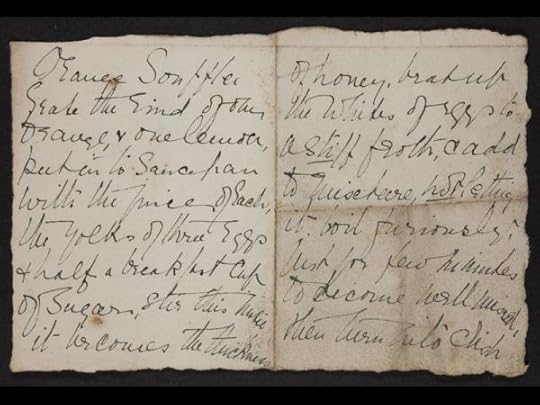 Orange Souffler
Grate the rind of one
Orange, & one lemon,
put in to Saucepan
with the juice of Each,
the yolks of three Eggs
& half a breakfast Cup
of Sugar, stir this until
it becomes the thickness
of honey, beat up
the Whites of Eggs to
a stiff froth, & add
to mixture, not letting
it boil furiously,
but for few minutes
to become well mixed,
then turn into dish